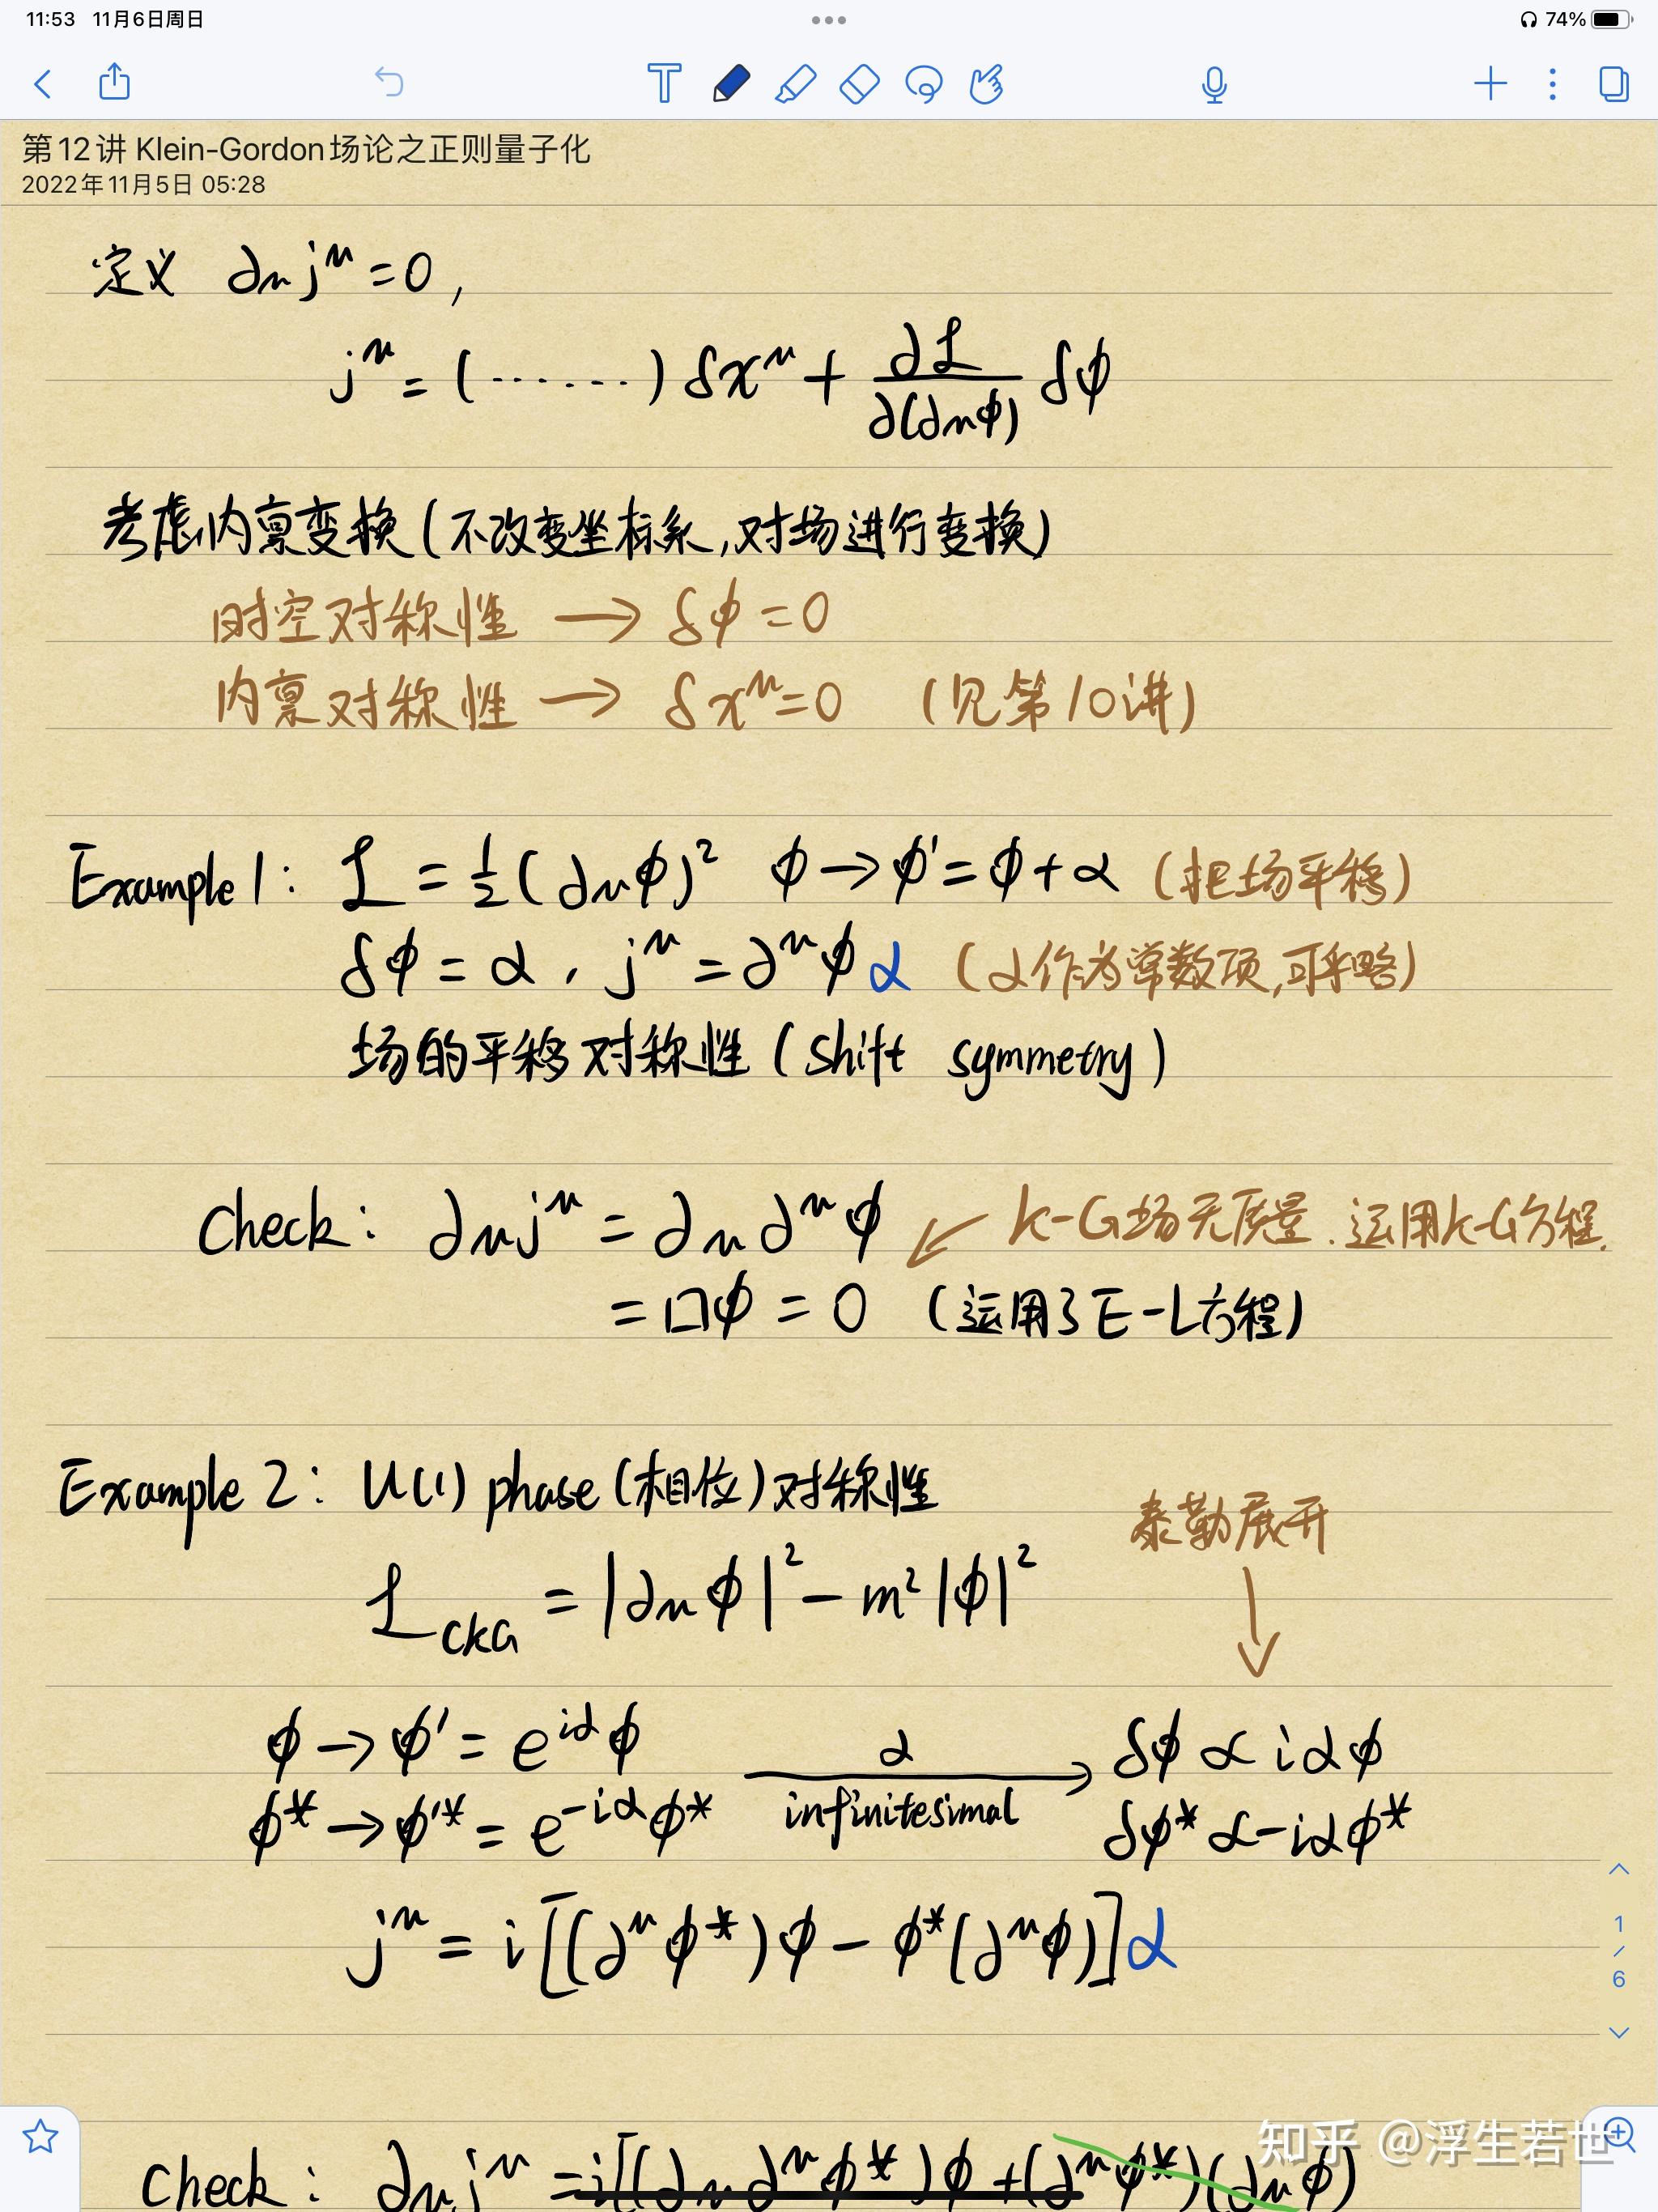 11:53 11月6日周日
74%
第12讲 Klein-Gordon场论之正则量子化
2022年11月5日 05:28
定义 ∂μ j^μ = 0,
j^μ = (······) δx^μ + ∂ℒ/∂(∂μφ) δφ
考虑内禀变换(不改变坐标系,对场进行变换)
时空对称性 → δφ = 0
内禀对称性 → δx^μ = 0 (见第10讲)
Example 1: ℒ = ½(∂μφ)² φ → φ' = φ + α (把场平移)
δφ = α , j^μ = ∂^μφ α (α作为常数项,可乎略)
场的平移对称性 (shift symmetry)
Check: ∂μ j^μ = ∂μ∂^μ φ ↙ K-G场无质量.运用K-G方程.
= □φ = 0 (运用了E-L方程)
Example 2: U(1) phase(相位)对称性
泰勒展开
ℒ_CKG = |∂μφ|² - m²|φ|²
φ → φ' = e^{iα}φ α δφ ∝ iαφ
φ* → φ'* = e^{-iα}φ* infinitesimal δφ* ∝ -iαφ*
j^μ = i[(∂^μφ*)φ - φ*(∂^μφ)]α
1/6
Check: ∂μ j^μ = i[(∂μ∂^μφ*)φ + (∂^μφ*)(∂μφ)
知乎 @浮生若世